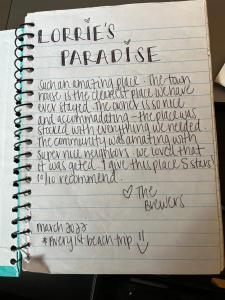 LORRIE'S
PARADISE
Such an amazing place. The town
house is the cleanest place we have
ever stayed. The owner is so nice
and accommadating - the place was
stocked with everything we needed.
The community was amazing with
super nice neighbors. we loved that
it was gated. I give this place 5 stars!
10/10 recommend.
♡ The
Brewers
march 2022
*Avery 1st beach trip :)